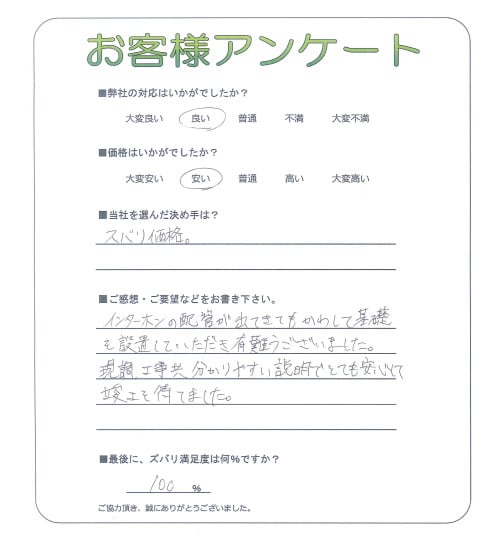 お客様アンケート
■弊社の対応はいかがでしたか？
大変良い 良い 普通 不満 大変不満
■価格はいかがでしたか？
大変安い 安い 普通 高い 大変高い
■当社を選んだ決め手は？
スバリ価格。
■ご感想・ご要望などをお書き下さい。
インターホンの配管が出てきてもかわして基礎
を設置していただき有難うございました。
現調、工事共分かりやすい説明でとても安心して
竣工を待てました。
■最後に、ズバリ満足度は何％ですか？
100 ％
ご協力頂き、誠にありがとうございました。